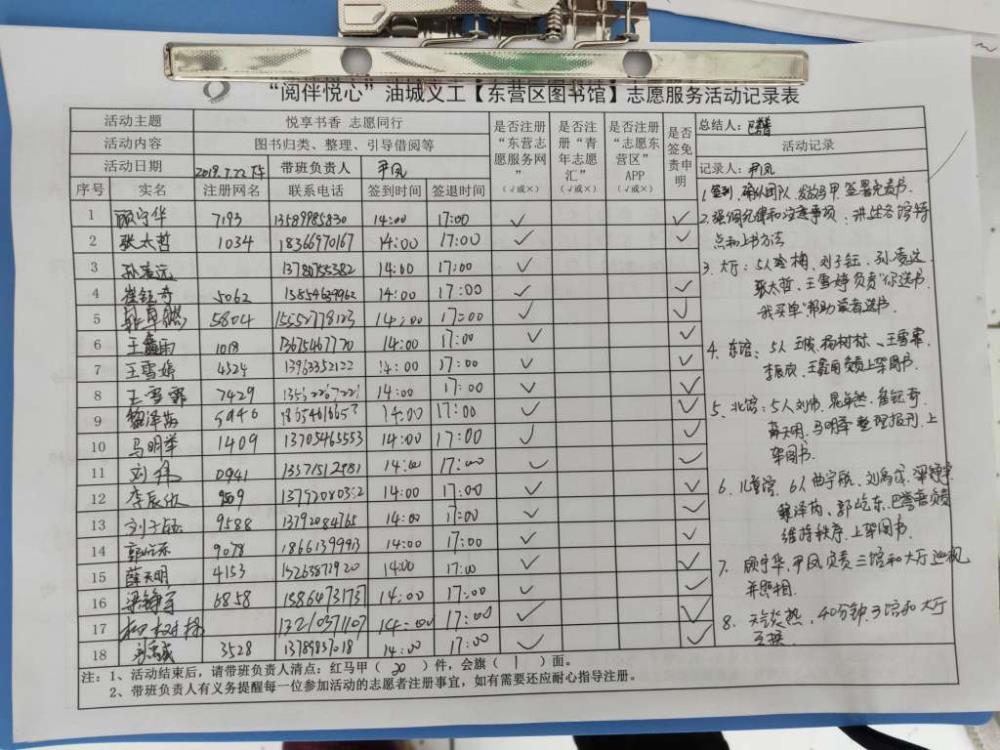 “阅伴悦心”油城义工【东营区图书馆】志愿服务活动记录表
活动主题 悦享书香 志愿同行
活动内容 图书归类、整理、引导借阅等
活动日期 2019.7.22下午 带班负责人 尹凤
是否注册“东营志愿服务网”(√或×)
是否注册“青年志愿汇”(√或×)
是否注册“志愿东营区”APP(√或×)
是否签免责申明
总结人:
活动记录
记录人:尹凤
序号 实名 注册网名 联系电话 签到时间 签退时间
1 顾宁华 7193 13589985830 14:00 17:00 √ √
2 张太哲 1034 18366970167 14:00 17:00 √ √
3 孙凌远 13780755382 14:00 17:00 √
4 崔钰奇 5062 13854639962 14:00 17:00 √ √
5 5804 15552778123 14:00 17:00 √ √
6 王鑫雨 1018 13675467770 14:00 17:00 √ √
7 王雪婷 4524 13963352122 14:00 17:00 √ √
8 王雪霏 7429 14:00 17:00 √ √
9 黎泽芮 14:00 17:00 √ √
10 马明泽 1409 13705465553 14:00 17:00 √ √
11 刘伟 0941 14:00 17:00 √ √
12 李辰欣 14:00 17:00 √ √
13 刘子钰 9588 13792084765 14:00 17:00 √ √
14 郭屹东 9078 18661399913 14:00 17:00 √ √
15 薛天明 4153 15263872920 14:00 17:00 √ √
16 6858 14:00 17:00 √ √
17 杨树林 13210371107 14:00 17:00 √ √
18 3528 14:00 17:00 √ √
1. 签到、确认团队、发放马甲、签署免责书。
2. 强调纪律和注意事项,讲述各馆特
点和上书方法
3. 大厅:5人 刘子钰、孙凌远、
张太哲、王雪婷负责“你选书
我买单”帮助读者选书。
4. 东馆:5人 杨树林、王雪霏、
李辰欣、王鑫雨负责上架图书。
5. 北馆:5人刘伟、崔钰奇、
薛天明、马明泽整理报刊、上
架图书。
6. 儿童馆:6人
黎泽芮、郭屹东、负责
维持秩序、上架图书。
7. 顾宁华、尹凤负责三馆和大厅巡视
并照相。
8. 天气炎热,40分钟3馆和大厅
互换。
注:1、活动结束后,请带班负责人清点:红马甲(20)件,会旗(1)面。
2、带班负责人有义务提醒每一位参加活动的志愿者注册事宜,如有需要还应耐心指导注册。